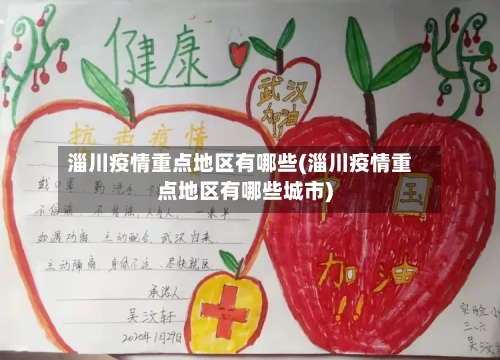 健康
武汉
加油
抗击疫情
淄川疫情重点地区有哪些(淄川疫情重
点地区有哪些城市)
不信谣、不传谣、人人
如遇劝离、主动配合、武汉归来
主动隔离、身体不适、尽快就医
承诺人
吴汶轩
2020年1月29日
中国
加油
!!
实验小
三、六
吴汶